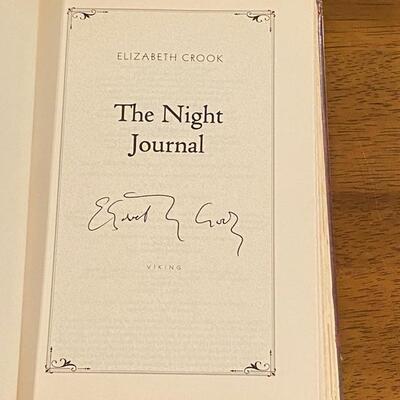 ELIZABETH CROOK
The Night
Journal
Elizabeth Crook
VIKING